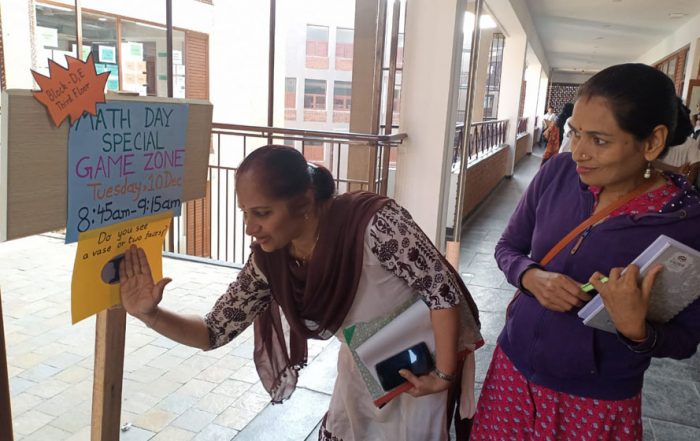 Block-D,E
Third Floor
MATH DAY
SPECIAL
GAME ZONE
Tuesday, 10 Dec
8:45am-9:15am
Do you see
a vase or two faces?